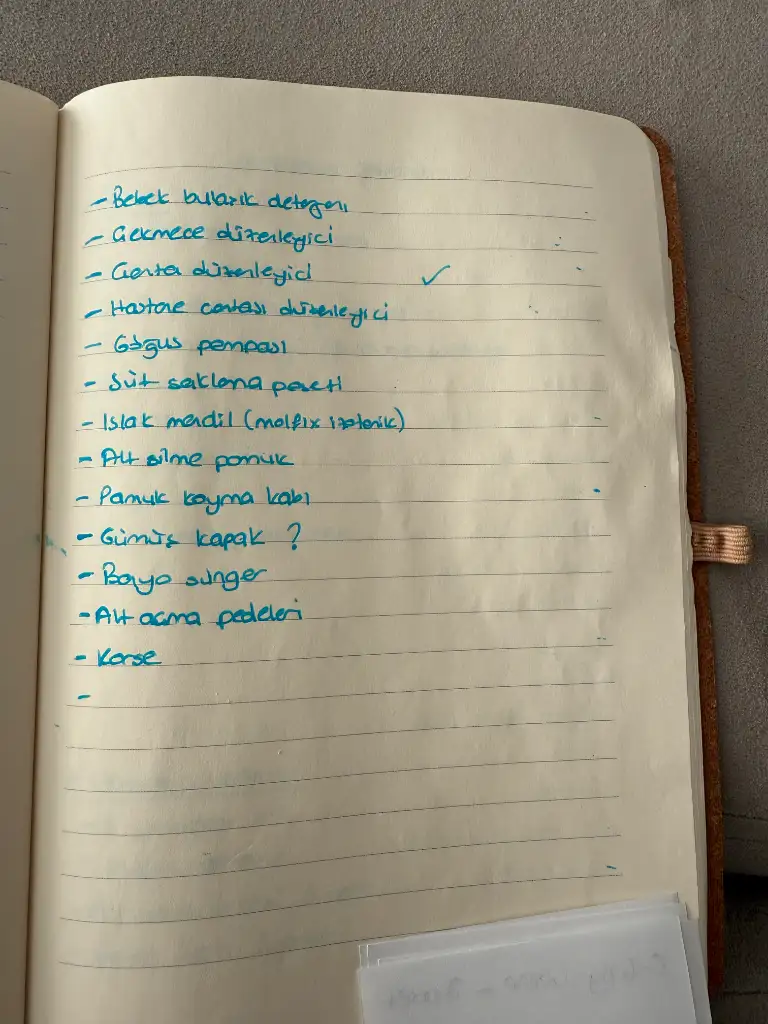 - Bebek bulaşık detejanı
- Çekmece düzenleyici
- Çanta düzenleyici ✓
- Hastane çantası düzenleyici
- Göğüs pompası
- Süt saklama poşeti
- Islak mendil (molfix izotonik)
- Alt silme pamuk
- Pamuk koyma kabı
- Gümüş kapak ?
- Banyo sünger
- Alt açma pedeleri
- Korse
-